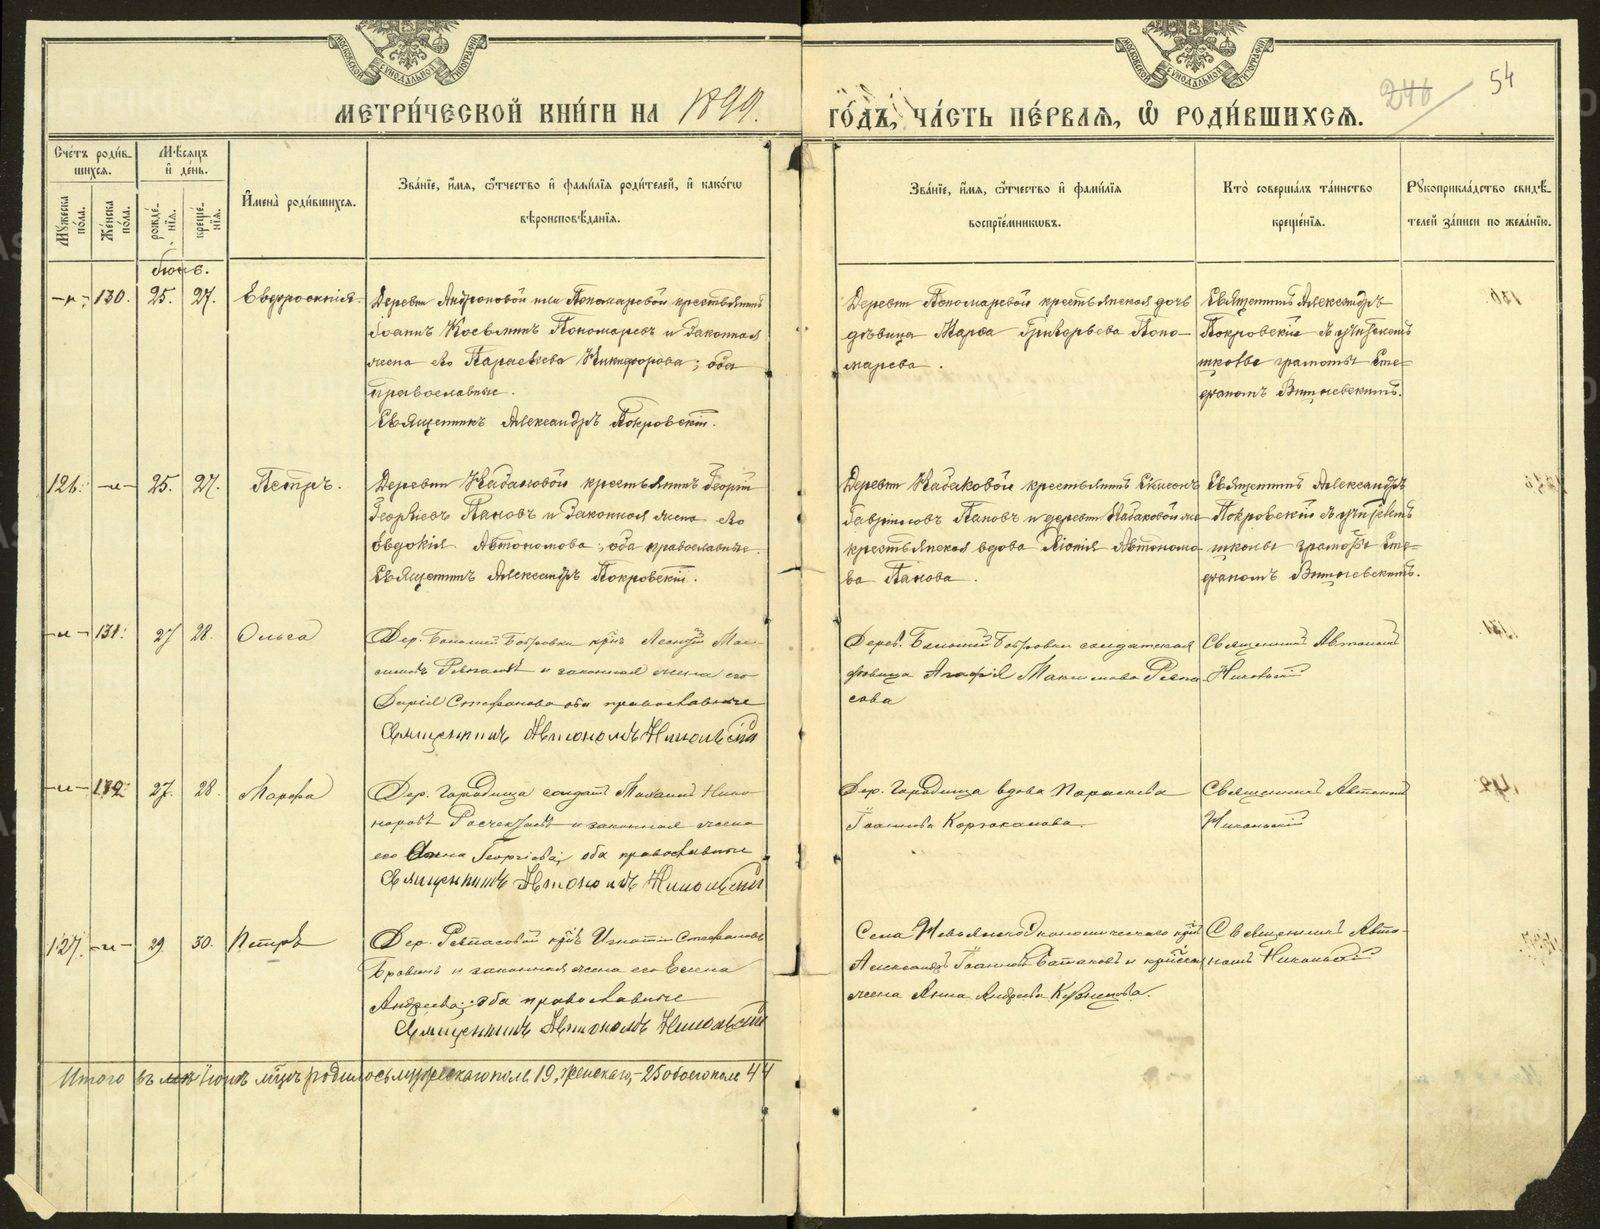 МЕТРИ́ЧЕСКОЙ КНИ́ГИ НА 1899. ГО́ДЪ, ЧА́СТЬ ПЕ́РВАЯ, Ѽ РОДИ́ВШИХСЯ.
246 54
Сче́тъ роди́в-
шихся.
Му́жеска по́ла.
Же́нска по́ла.
Мѣ́сяцъ
и҆ де́нь.
рожде́-
нїя.
креще́-
нїя.
И҆мена̀ роди́вшихся.
Зва́нїе, и҆́мя, ѻ҆́тчество и҆ фамѝлїя роди́телей, и҆ како́гѡ
вѣроисповѣ́данїя.
Зва́нїе, и҆́мя, ѻ҆́тчество и҆ фамѝлїя
воспрїе́мникѡвъ.
Кто̀ соверша́лъ та́инство
креще́нїя.
Рꙋкоприкла́дство свидѣ́-
телей за́писи по жела́нїю.
Іюнь.
130. 25. 27. Евфросинія.
Деревни Андроновой или Пономаревой крестьянинъ
Іоаннъ Косьминъ Пономаревъ и законная
жена его Параскева Никифорова; оба
православные.
Священникъ Александръ Покровскій.
Деревни Пономаревой крестьянская дочь
дѣвица Марѳа Григорьева Поно-
марева.
Священникъ Александръ
Покровскій съ учителемъ
школы грамоты Сте-
фаномъ
126. —и— 25. 27. Петръ.
Деревни Кабаковой крестьянинъ Георгій
Георгіевъ Пановъ и законная жена его
Евдокія Автономова; оба православные.
Священникъ Александръ Покровскій.
Деревни Кабаковой крестьянинъ
Гавріиловъ Пановъ и деревни Кабаковой же
крестьянская вдова Автономо-
ва Панова.
Священникъ Александръ
Покровскій съ учителемъ
школы грамоты Сте-
фаномъ
—и— 131. 27 28. Ольга
Дер. кр-нъ Леонтій Мак-
симовъ и законная жена его
Дарія Стефанова оба православные
Священникъ Автономъ Никольскій
Дерев. солдатская
дѣвица Агафія Максимова
Священникъ Автономъ
Никольскій
—и— 132 27. 28. Марѳа
Дер. Городища солдатъ Никано-
ровъ и законная жена
его Анна Георгіева; оба православные
Священникъ Автономъ Никольскій
Дер. Городища вдова Параскева
Іоаннова
Священникъ Автономъ
Никольскій
127. —и— 29. 30. Петръ
Дер. Ряпасовой кр-нъ Игнатій Стефановъ
и законная жена его Елена
Андреева; оба православные
Священникъ Автономъ Никольскій
Села Невьянского экономического
Александръ Іоанновъ и
жена Анна Андреева Кузнецова.
Священникъ Авто-
номъ Никольскій
Итого въ Іюнѣ м-цѣ родилось мужескаго пола 19, женскаго,- 25 обоего пола 44